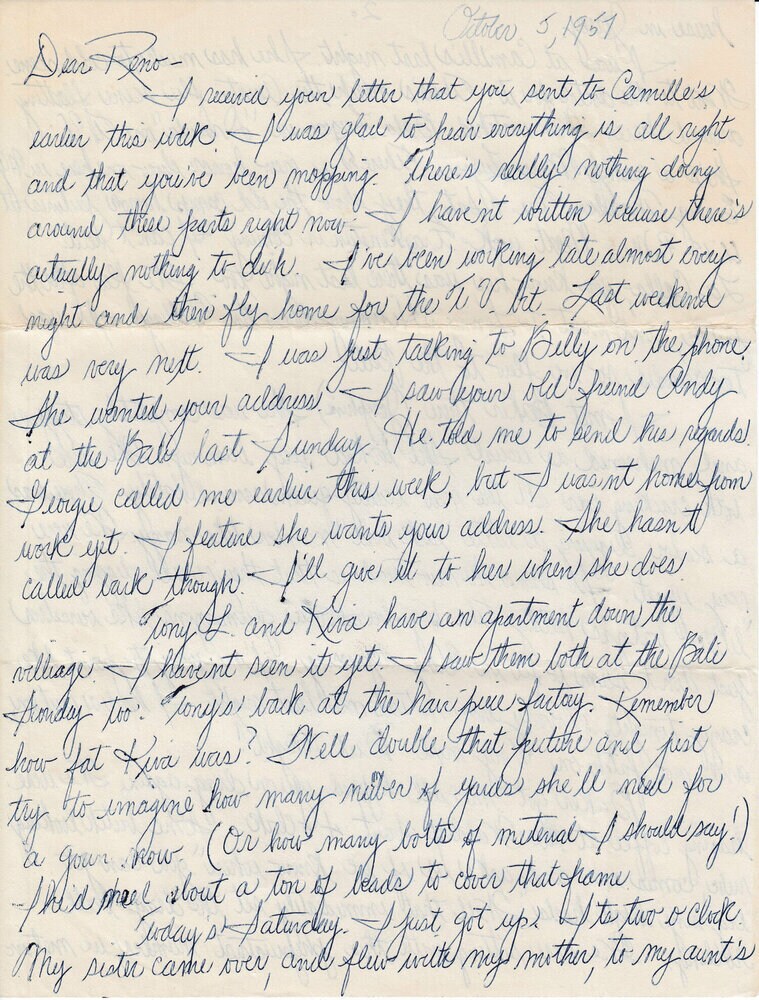 October 5, 1957
Dear Reno-
I received your letter that you sent to Camille's
earlier this week. I was glad to hear everything is all right
and that you've been mopping. There's really nothing doing
around these parts right now. I have'nt written because there's
actually nothing to dish. I've been working late almost every
night and then fly home for the T.V. bit. Last weekend
was very nett. I was just talking to Billy on the phone.
She wanted your address. I saw your old friend Andy
at the Bali last Sunday. He told me to send his regards.
Georgie called me earlier this week, but I was'nt home from
work yet. I feature she wants your address. She hasn't
called back though. I'll give it to her when she does.
Tony L. and Kiva have an apartment down the
villiage. I have'nt seen it yet. I saw them both at the Bali
Sunday too. Tony's back at the hair piece factory. Remember
how fat Kiva was? Well double that picture and just
try to imagine how many number of yards she'll need for
a gown now. (Or how many bolts of meterial I should say!)
She'd need about a ton of beads to cover that frame.
Today's Saturday. I just got up. Its two o'clock.
My sister came over, and flew with my mother, to my aunt's